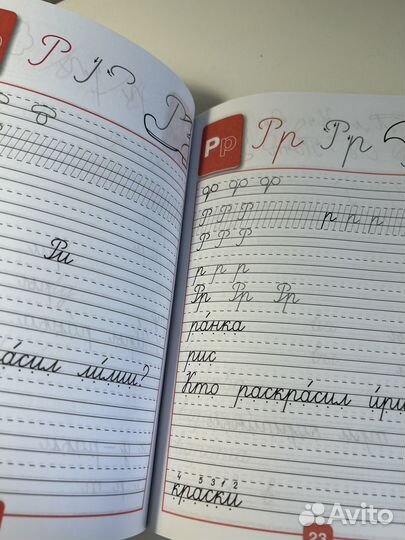 Р
Ри
а́сил ли́лии?
Рр Рр Рр
Р Р Р р р р
Р Р Р
р р р
Рр Рр Рр
ра́нка
рис
Кто раскра́сил и́ри
4 5 3 1 2
краски
23
Avito